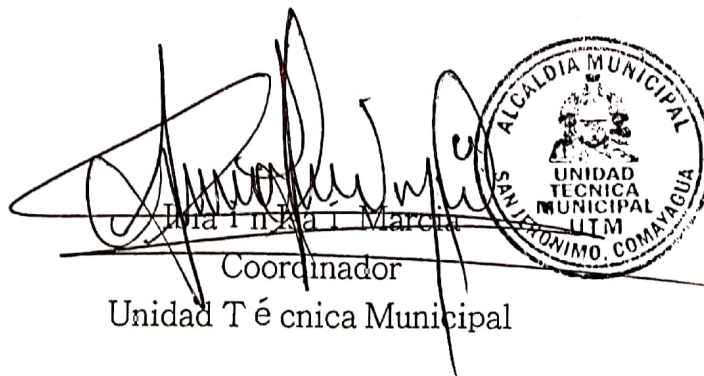 ALCALDIA MUNICIPAL
UNIDAD
TECNICA
MUNICIPAL
UTM
SAN JERONIMO, COMAYAGUA
Marcia
Coordinador
Unidad T é cnica Municipal